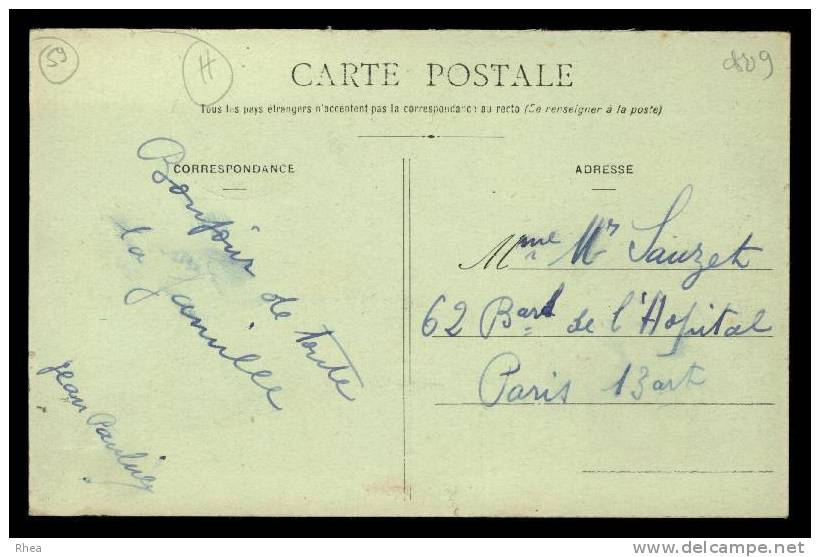 59
H
809
CARTE POSTALE
Tous les pays étrangers n'acceptent pas la correspondance au recto (Se renseigner à la poste)
CORRESPONDANCE
Bonjour de toute
la famille
Jean
ADRESSE
Mme Mr Sauzet
62 Bard de l'Hopital
Paris 13art
Rhea
www.delcampe.net